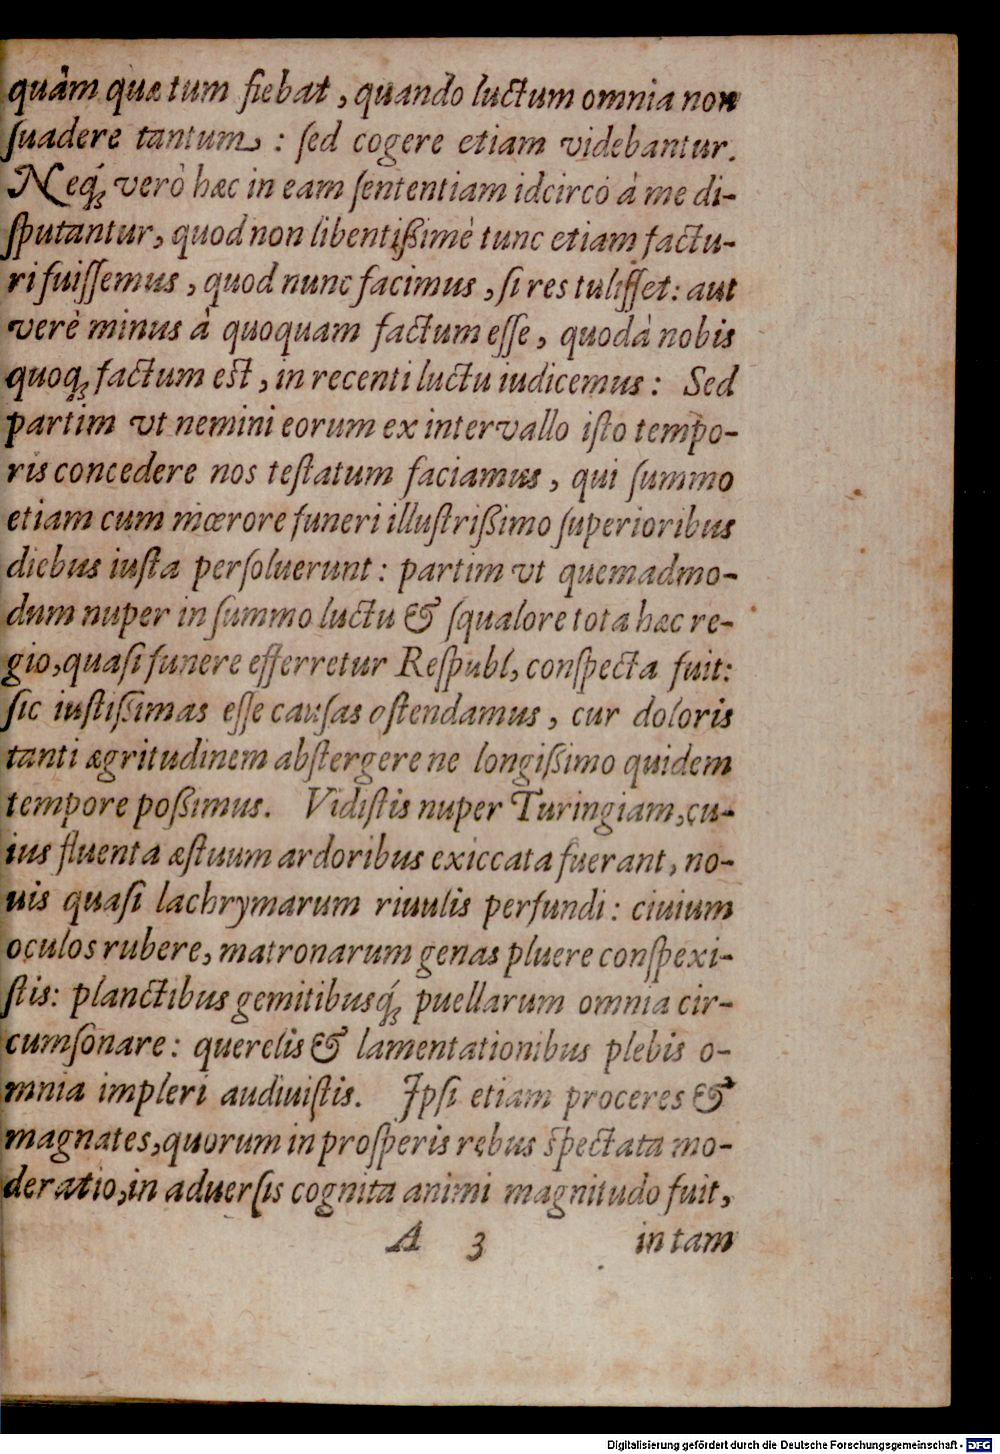 quàm quæ tum fiebat, quando luctum omnia non
ſuadere tantum: ſed cogere etiam videbantur.
Neq́ꝫ verò hæc in eam ſententiam idcircò à me di-
ſputantur, quod non libentiſſimè tunc etiam factu-
ri fuiſſemus, quod nunc facimus, ſi res tuliſſet: aut
verè minus à quoquam factum eſſe, quod à nobis
quoqꝫ factum eſt, in recenti luctu iudicemus: Sed
partim vt nemini eorum ex intervallo iſto tempo-
ris concedere nos teſtatum faciamus, qui ſummo
etiam cum mœrore funeri illuſtrißimo ſuperioribus
diebus iuſta perſoluerunt: partim vt quemadmo-
dum nuper in ſummo luctu & ſqualore tota hæc re-
gio, quaſi funere efferretur Reſpubl, conſpecta fuit:
ſic iuſtißimas eſſe cauſas oſtendamus, cur doloris
tanti ægritudinem abſtergere ne longißimo quidem
tempore poßimus. Vidiſtis nuper Turingiam, cu-
ius fluenta æſtuum ardoribus exiccata fuerant, no-
uis quaſi lachrymarum riuulis perfundi: ciuium
oculos rubere, matronarum genas pluere conſpexi-
ſtis: planctibus gemitibusq́ꝫ puellarum omnia cir-
cumſonare: querelis & lamentationibus plebis o-
mnia impleri audiuiſtis. Ipſi etiam proceres &
magnates, quorum in proſperis rebus ſpectata mo-
deratio, in aduerſis cognita animi magnitudo fuit,
A 3 in tam
Digitalisierung gefördert durch die Deutsche Forschungsgemeinschaft - DFG